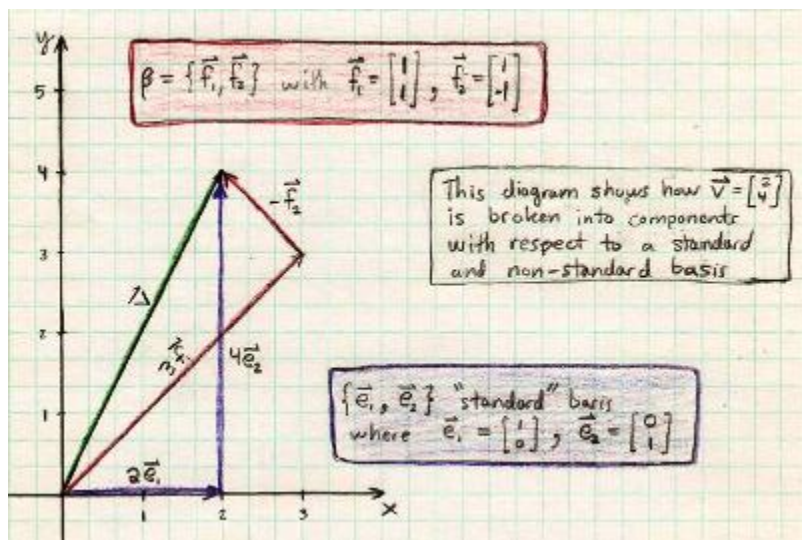 y
β = {f⃗₁, f⃗₂} with f⃗₁ = [1 1], f⃗₂ = [1 -1]
5
4
3
2
1
This diagram shows how v⃗ = [2 4]
is broken into components
with respect to a standard
and non-standard basis
-f⃗₂
v⃗
3f⃗₁
4e⃗₂
{e⃗₁, e⃗₂} "standard" basis
where e⃗₁ = [1 0], e⃗₂ = [0 1]
2e⃗₁
x
1 2 3